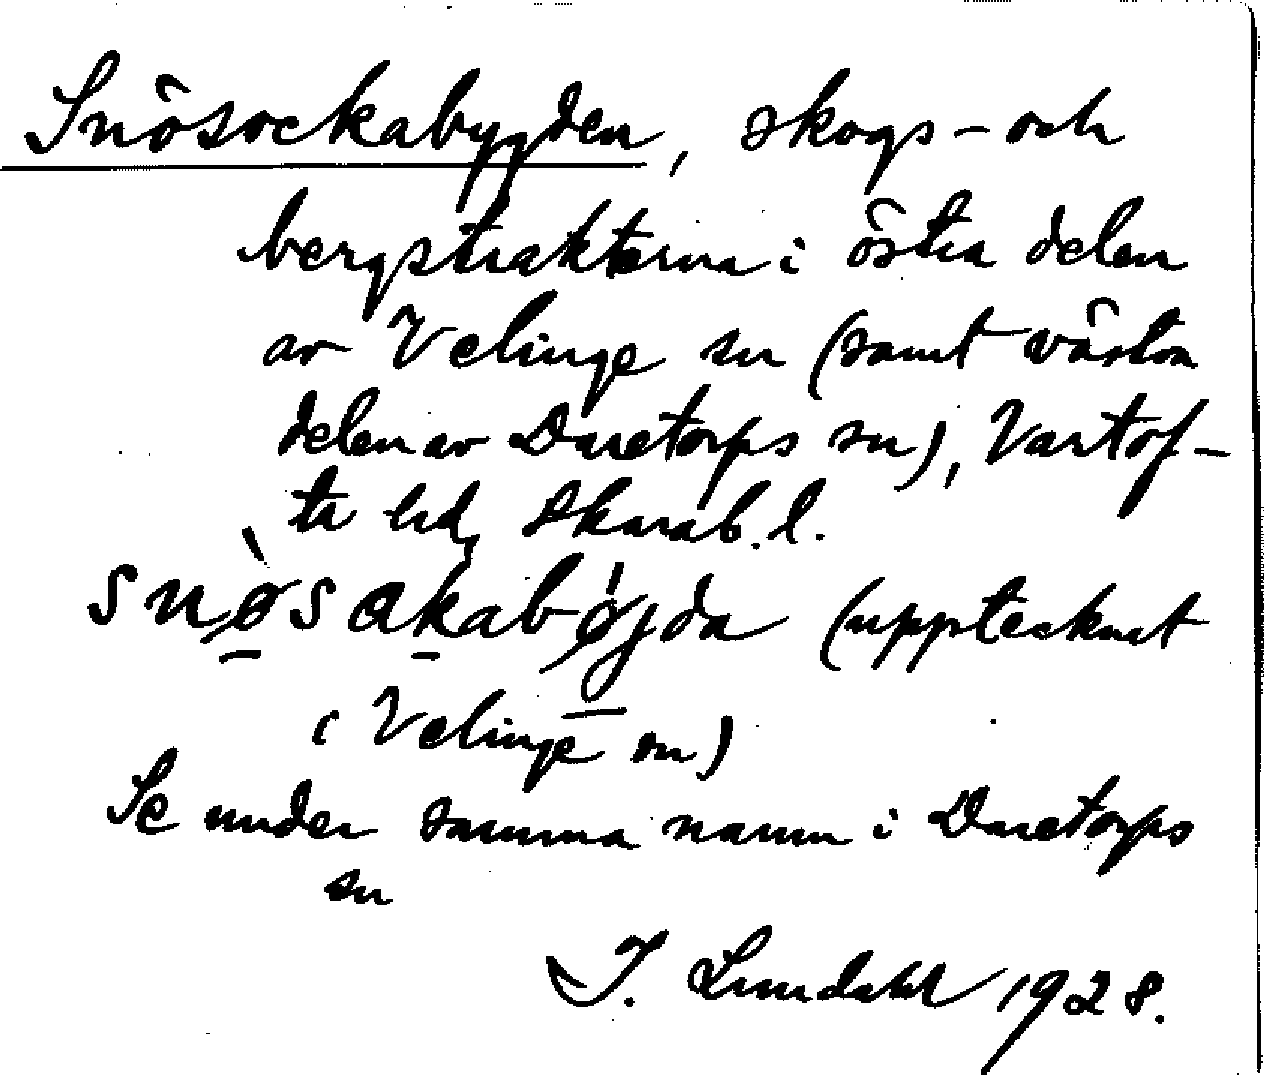 Snösockabygden, skogs- och
bergstrakterna i östra delen
av Velinge sn (samt västra
delen av Daretorps sn), Vartof-
ta hd, Skarab. l.
snø̀sakabǿjda (upptecknat
i Velinge sn)
Se under samma namn i Daretorps
sn
I. Lundahl 1928.